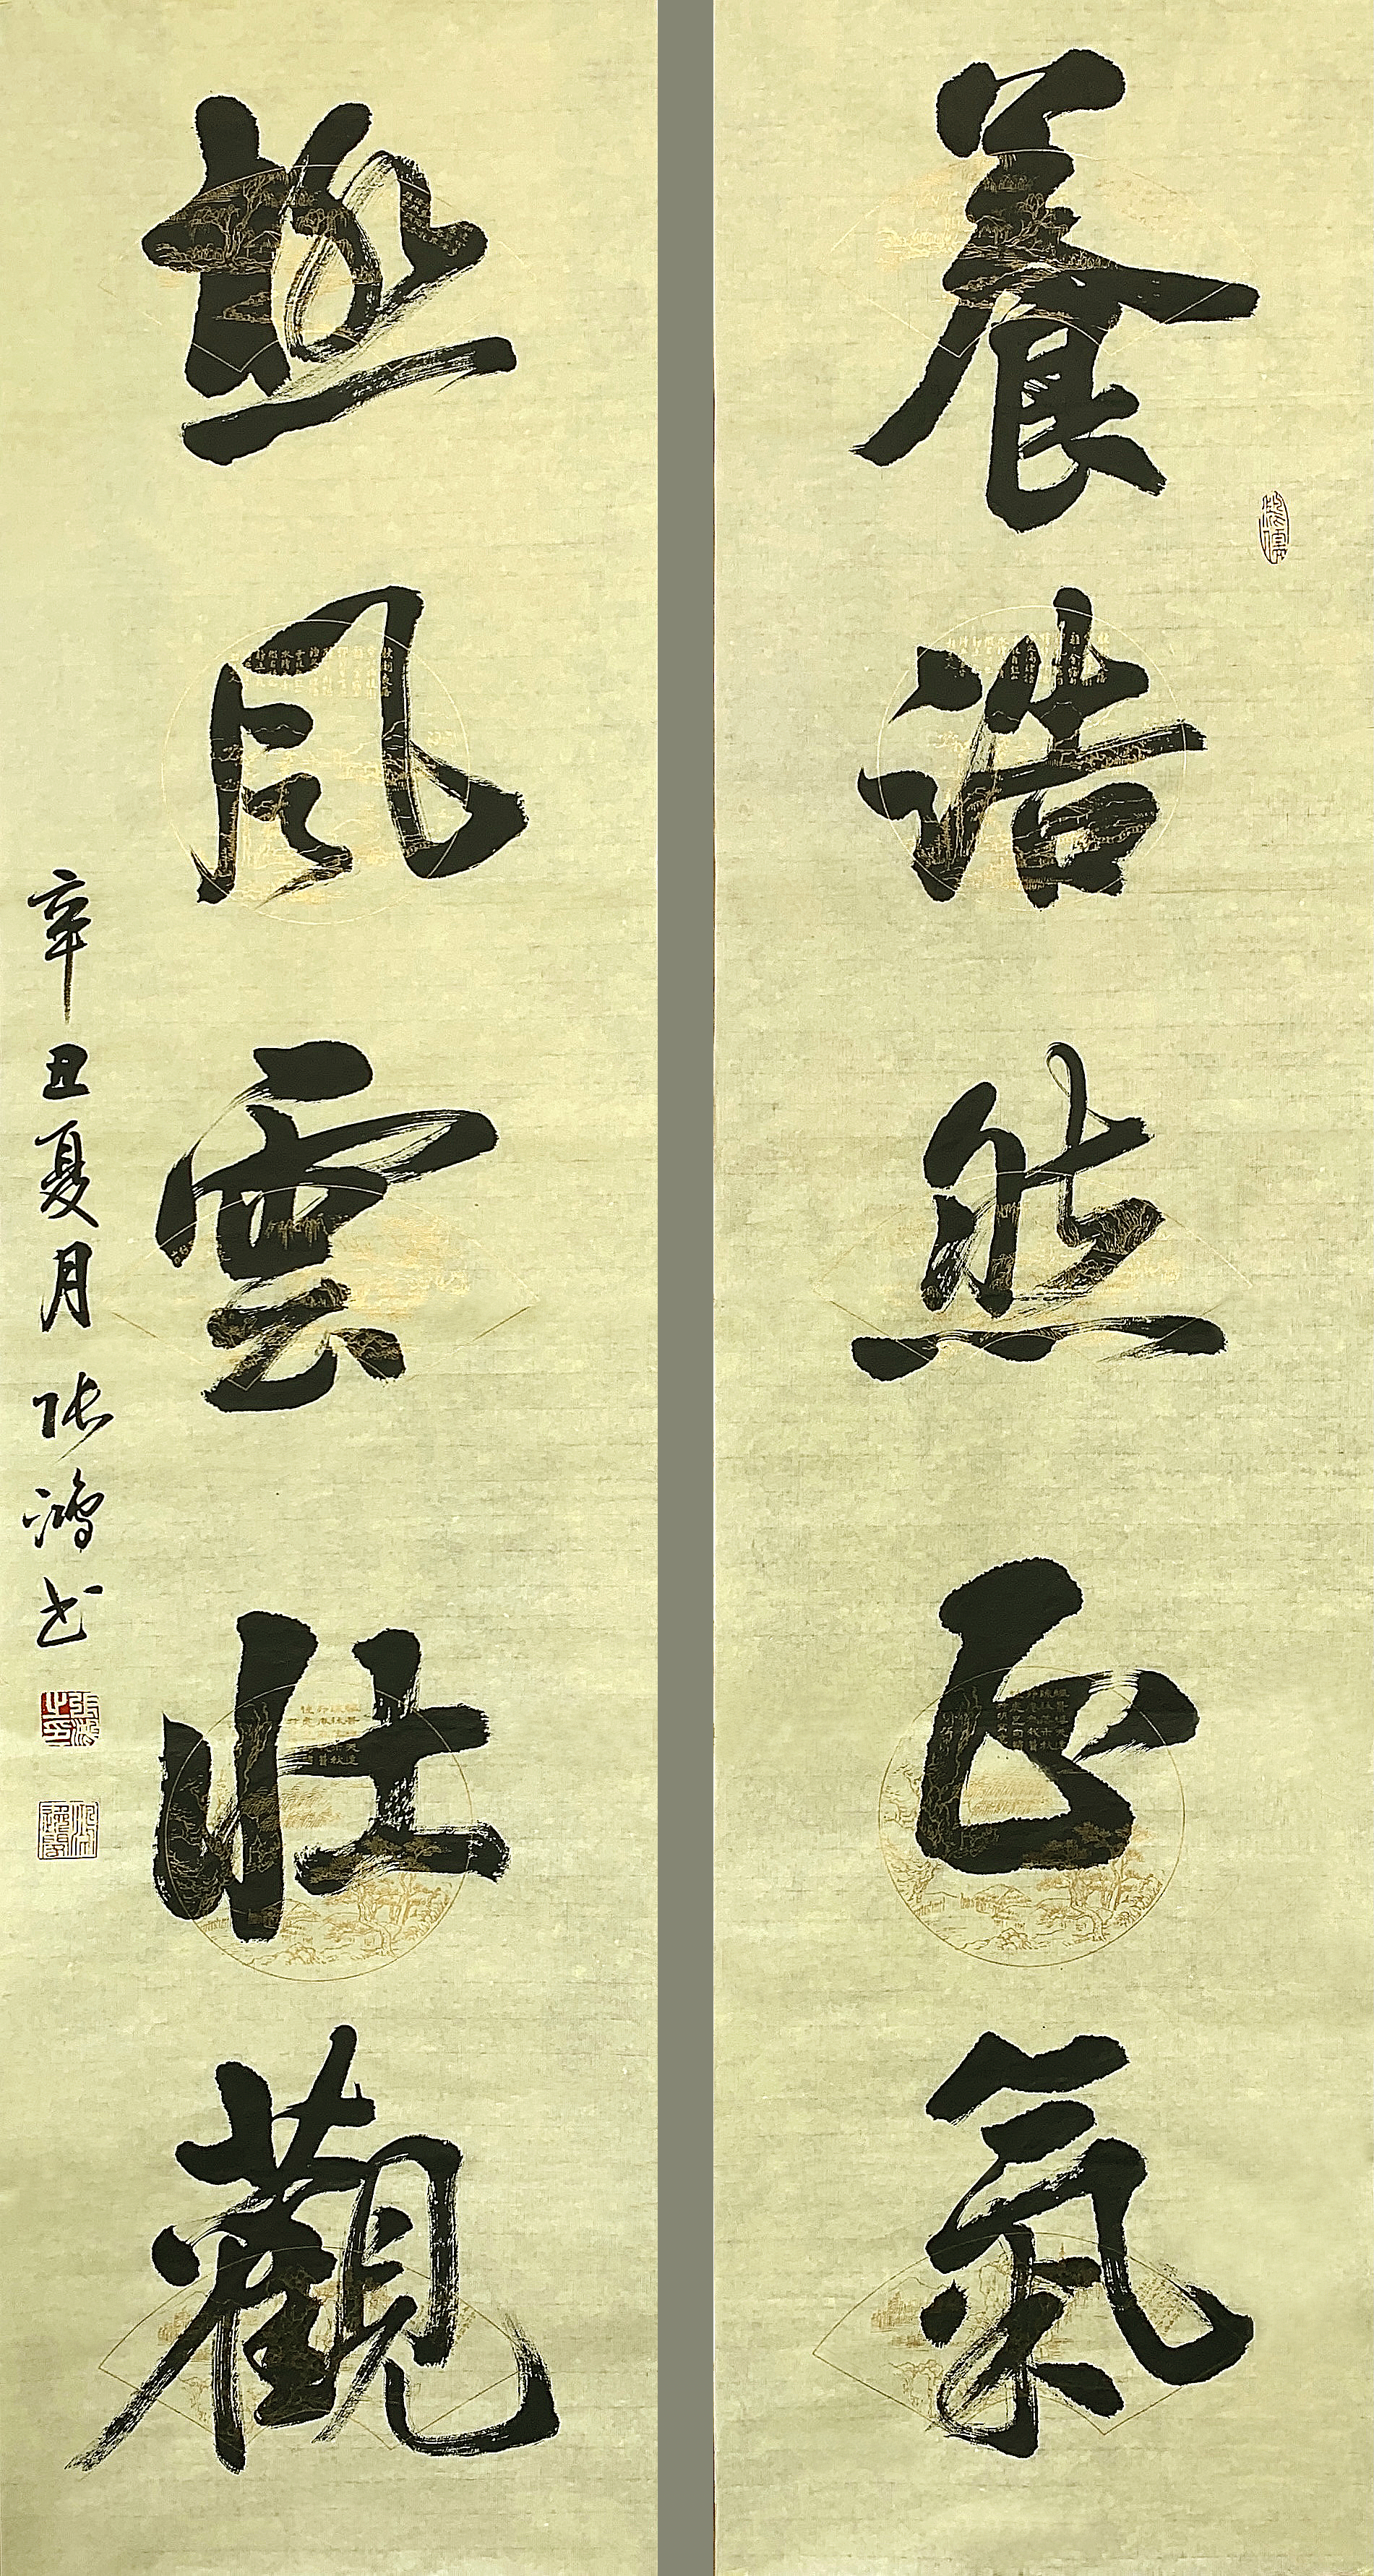 養浩然正氣
極風雲壯觀
辛丑夏月張鴻書